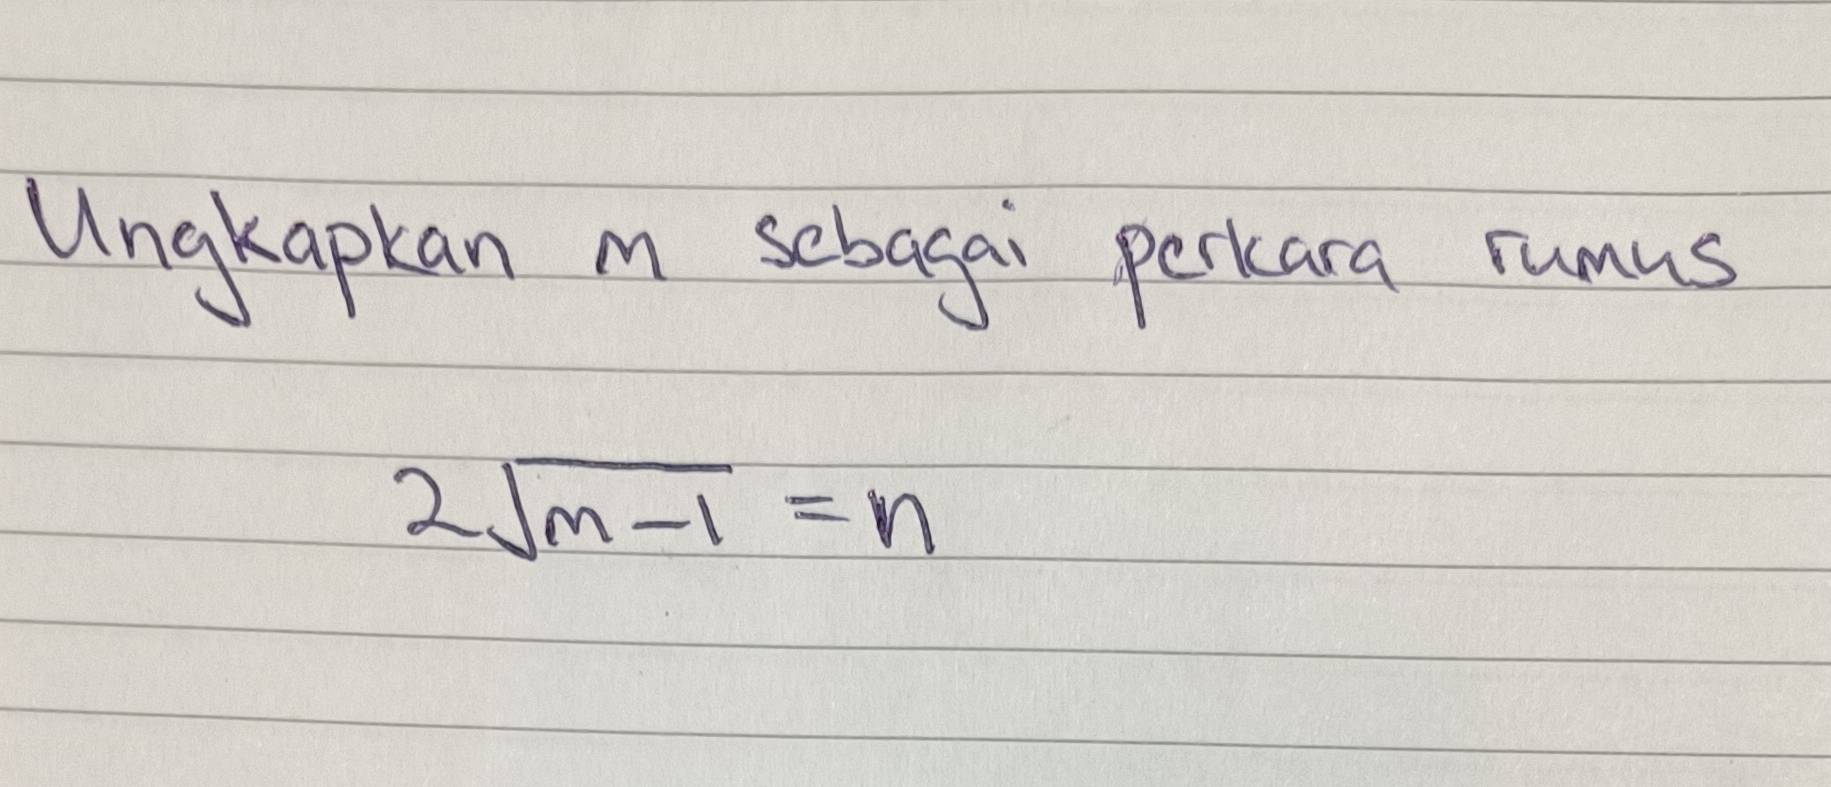 Ungkapkan m sebagai perkara rumus
2√(m-1) = n